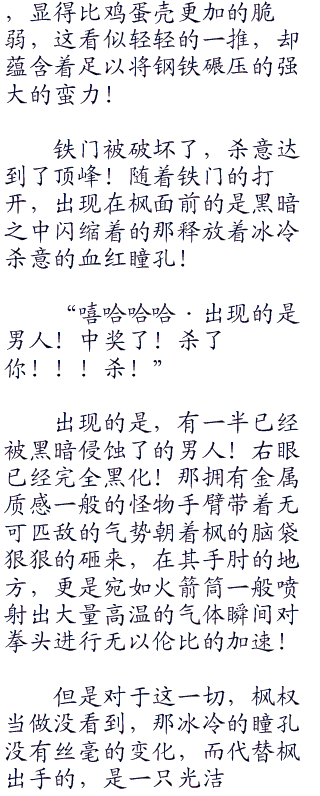 ，显得比鸡蛋壳更加的脆
弱，这看似轻轻的一推，却
蕴含着足以将钢铁碾压的强
大的蛮力！
铁门被破坏了，杀意达
到了顶峰！随着铁门的打
开，出现在枫面前的是黑暗
之中闪缩着的那释放着冰冷
杀意的血红瞳孔！
“嘻哈哈哈·出现的是
男人！中奖了！杀了
你！！！杀！”
出现的是，有一半已经
被黑暗侵蚀了的男人！右眼
已经完全黑化！那拥有金属
质感一般的怪物手臂带着无
可匹敌的气势朝着枫的脑袋
狠狠的砸来，在其手肘的地
方，更是宛如火箭筒一般喷
射出大量高温的气体瞬间对
拳头进行无以伦比的加速！
但是对于这一切，枫权
当做没看到，那冰冷的瞳孔
没有丝毫的变化，而代替枫
出手的，是一只光洁